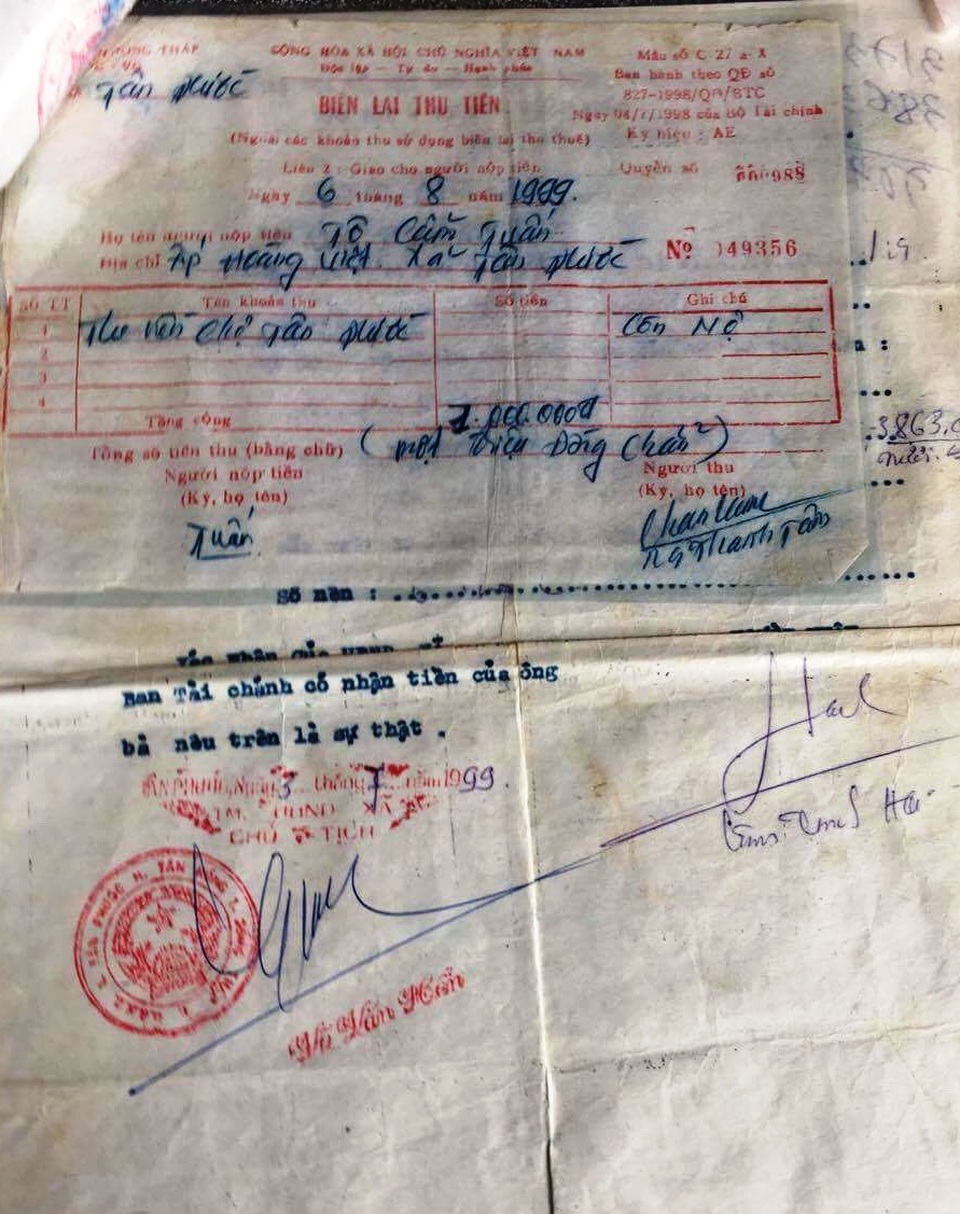 ĐỒNG THÁP
CỘNG HÒA XÃ HỘI CHỦ NGHĨA VIỆT NAM
Độc lập — Tự do — Hạnh phúc
Mẫu số C 27 a-X
Ban hành theo QĐ số
827-1998/QĐ/BTC
Ngày 04/7/1998 của Bộ Tài chính
Ký hiệu : AE
Tân phước
BIÊN LAI THU TIỀN
(Ngoài các khoản thu sử dụng biên lai thu thuế)
Liên 2 : Giao cho người nộp tiền
Quyển số 000988
Ngày 6 tháng 8 năm 1999.
Họ tên người nộp tiền Tô Cẩm Tuấn
Địa chỉ Ấp Hoàng Việt. Xã Tân phước
Nº 049356
SỐ TT Tên khoản thu Số tiền Ghi chú
1 Thu nền chợ Tân phước Còn Nợ
2
3
4
Tổng cộng 1.000.000đ
Tổng số tiền thu (bằng chữ) (một triệu đồng chẳn)
Người nộp tiền Người thu
(Ký, họ tên) (Ký, họ tên)
Tuấn
Ng Thanh Tâm
3.863.
Số nền :
Ban Tài chánh có nhận tiền của ông
bà nêu trên là sự thật .
TÂN PHƯỚC, Ngày 3 tháng 7 năm 1999.
TM. UBND XÃ
CHỦ TỊCH
Võ Văn